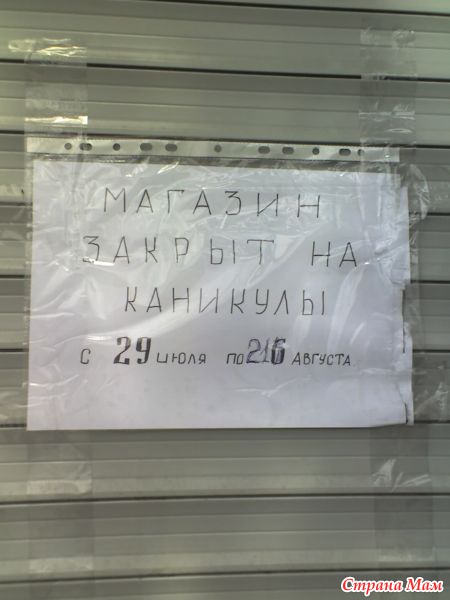 МАГАЗИН
ЗАКРЫТ НА
КАНИКУЛЫ
С 29 ИЮЛЯ ПО АВГУСТА
Страна Мам